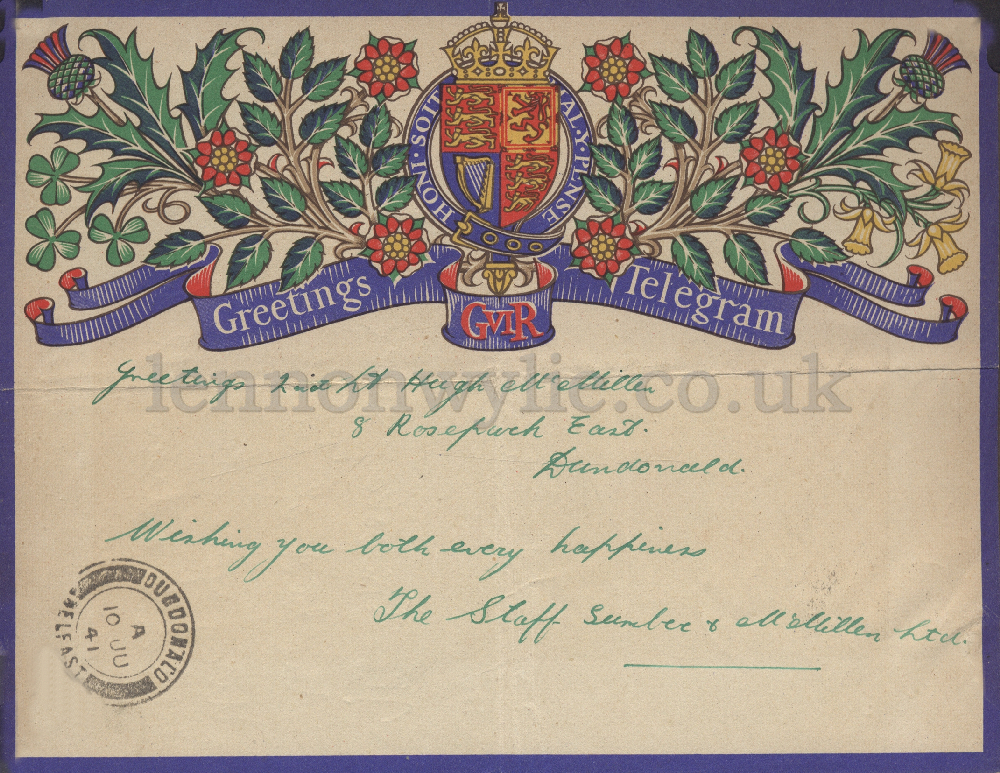 HONI·SOIT AL·Y·PENSE
Greetings Telegram
GVIR
lennonwylie.co.uk
Greetings 2nd Lt Hugh McMillen
8 Rosepark East.
Dundonald.
Wishing you both every happiness
The Staff & McMillen Ltd.
DUNDONALD
BELFAST
A
10 JU
41